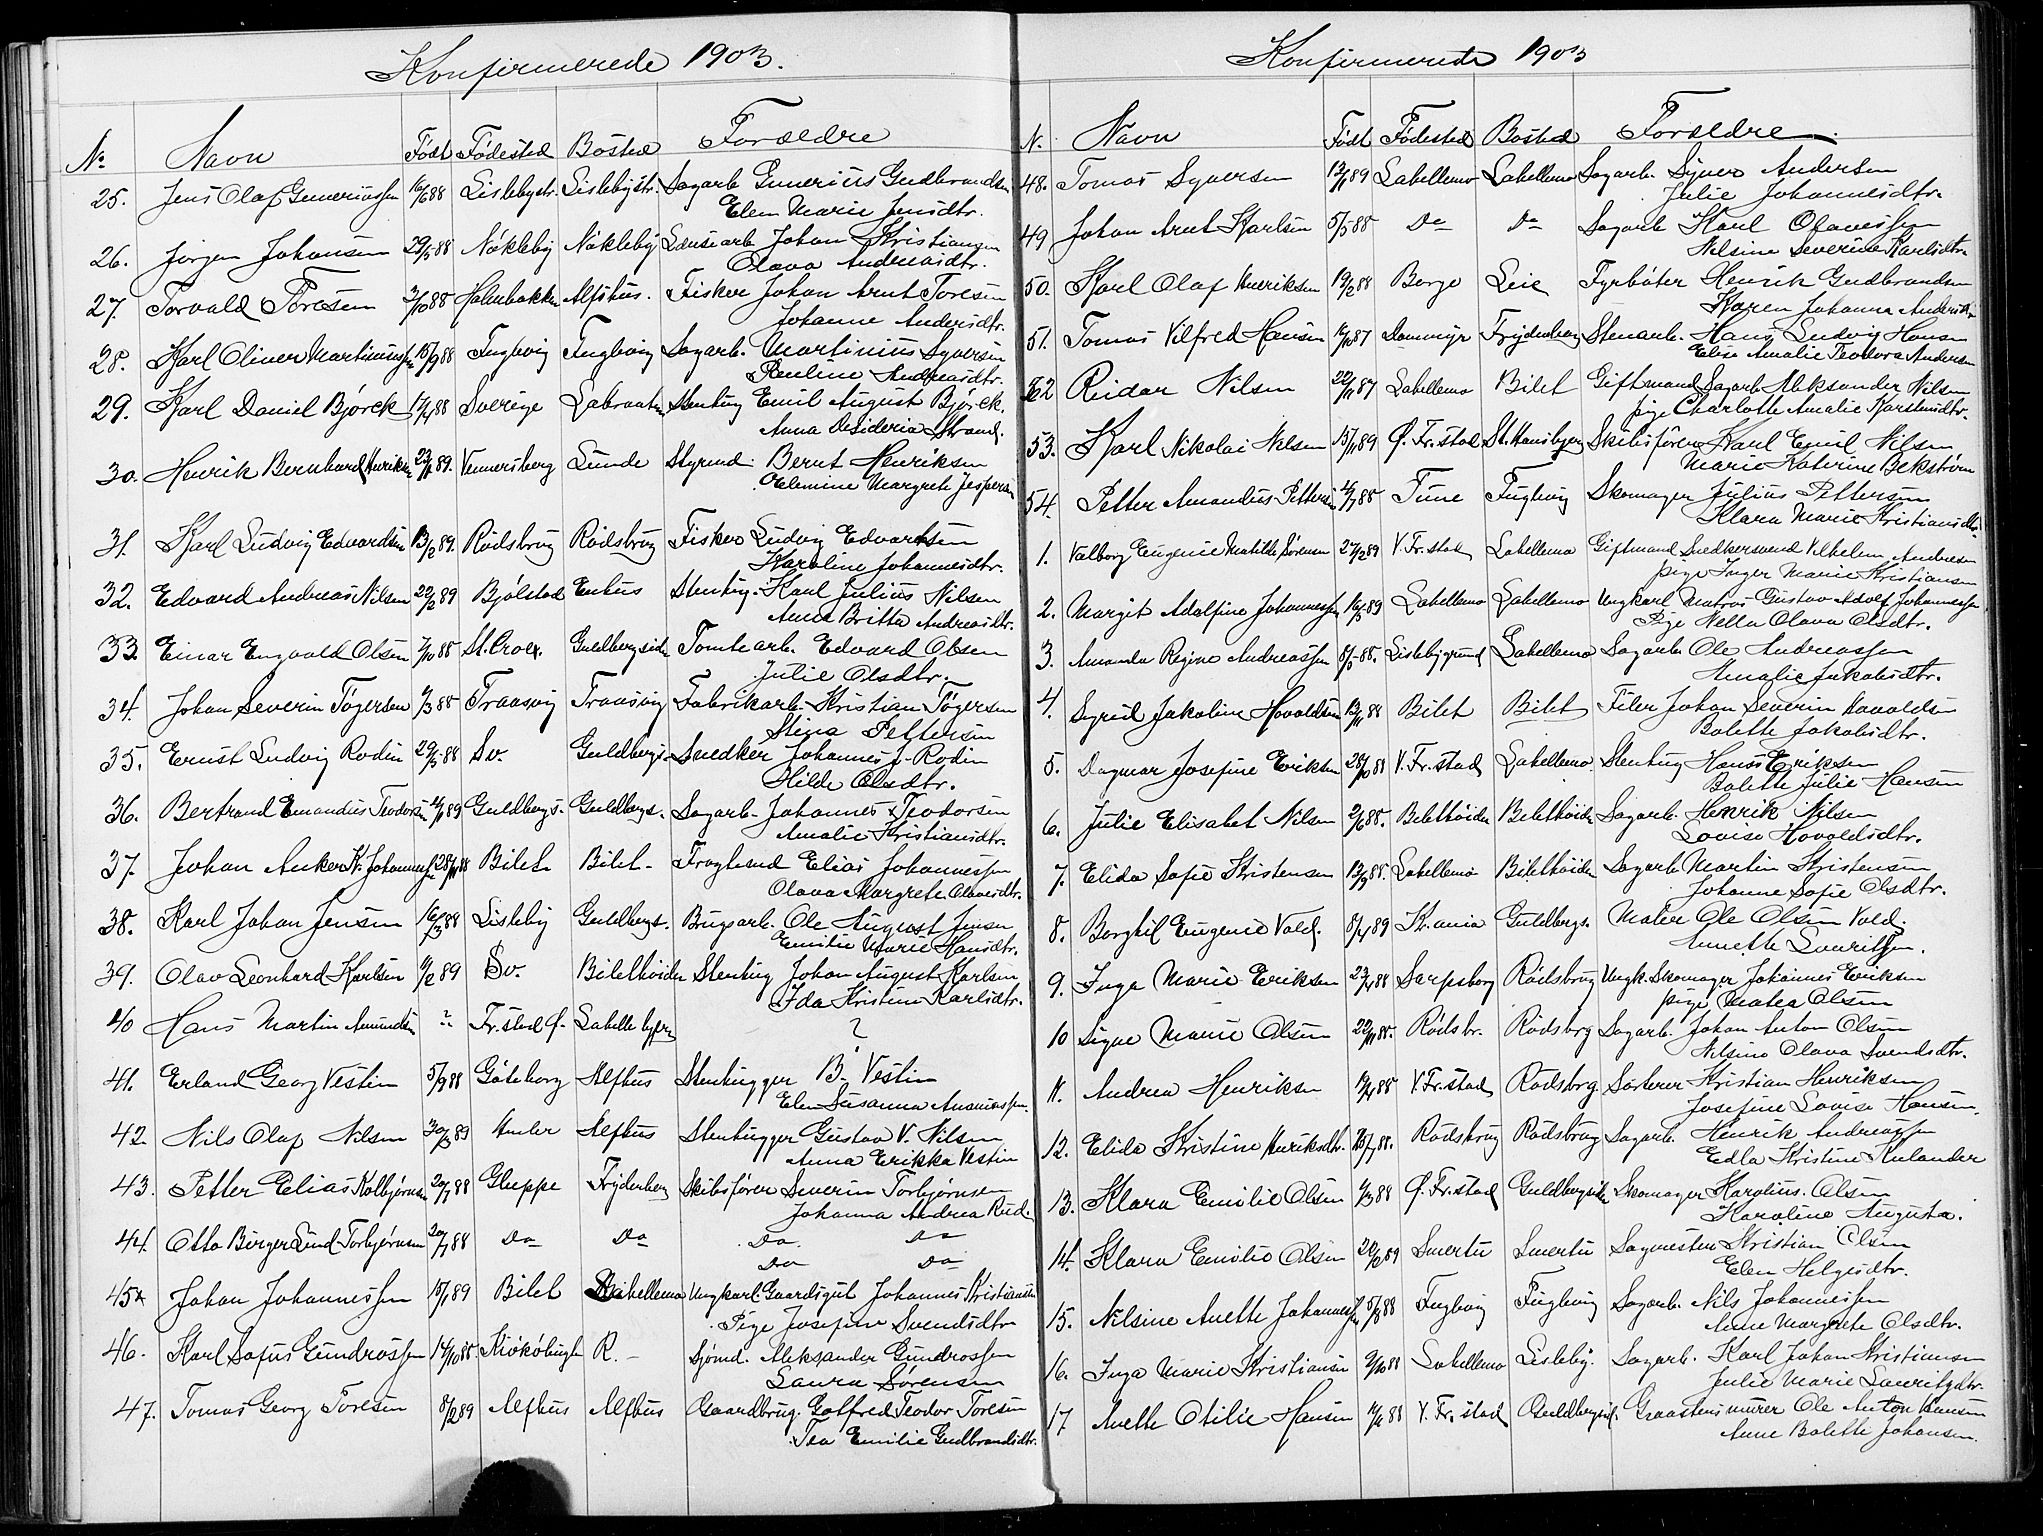 Konfirmerede 1903.
No Navn Født Fødested Bosted Forældre
25. Jens Olaf Guneriussen 16/6 88 Lislebystr. Lislebystr. Sagarb. Gunerius Gudbrandsen
Elen Marie Jensdtr.
26. Jørgen Johansen 29/5 88 Nøkleby Nøkleby Lænsearb. Johan Kristiansen
Olava Andreasdtr.
27. Torvald Toresen 3/10 88 Holmbakken Alfhus. Fisker Johan Arnt Toresen
Johanne Andersdtr.
28. Karl Oliver Martiniussen 15/9 88 Fuglevig Fuglevig Sagarb. Martinius Syversen
Pauline Andreasdtr.
29. Karl Daniel Bjørck 17/4 88 Sverige Labraaten Stenhug Emil August Bjørck.
Anna Desideria Strand.
30. Henrik Bernhard Henriksen 23/1 89. Vennersberg Lunde Styrmd. Bernt Henriksen
Elemine Margrete Jespersen
31. Karl Ludvig Edvardsen 13/2 89. Rødsbrug Rødsbrug Fisker Ludvig Edvardsen
Karoline Johannesdtr.
32. Edvard Andreas Nilsen 22/2 89 Bjølstad Enhus Stenhug. Karl Julius Nilsen
Anna Britta Andreasdtr.
33. Einar Engvald Olsen 7/10 88 St. Croix. Guldbergside Tomtearb. Edvard Olsen
Julie Olsdtr.
34. Johan Severin Tøgersen 11/3 88 Traasvig Traasvig Fabrikarb. Kristian Tøgersen
Stina Pettersen
35. Ernst Ludvig Rodin 29/5 88 Sv. Guldbergs. Snedker Johannes J. Rodin
Hilde Olsdtr.
36. Bertrand Emandius Teodorsen 21/1 89 Guldbergs. Guldbergs. Sagarb. Johannes Teodorsen
Amalie Kristiansdtr.
37. Johan Anker K. Johannessen 28/11 88 Bilet Bilet Fragtemd Elias Johannessen
Olava Margrete Olavesdtr.
38. Karl Johan Jensen 16/3 88 Lisleby Guldbergs. Brugsarb. Ole August Jensen
Emilie Marie Hansdtr.
39. Olav Leonhard Karlsen 11/2 89 Sv. Bilethøiden Stenhug Johan August Karlsen
Ida Kristine Karlsdtr.
40 Hans Martin Amundsen ? Fr. stad Ø. Labelle
?
41. Erland Georg Vestin 5/9 88 Gøteborg Alfhus Stenhugger B. Vestin
Elen Susanna Asmussen.
42. Nils Olaf Nilsen 30/3 89 Alfhus Stenhugger Gustav V. Nilsen
Anna Erikka Vestin
43. Petter Elias Kolbjørnsen 20/7 88 Glieppe Frydenberg Skibsfører Severin Torbjørnsen
Johanna Andrea Rud.
44. Otto Birger Lind Torbjørnsen 20/7 88 Do Do Do Do
Do Do
45 Johan Johannessen 15/1 89 Bilet Labellemo Ungkarl Gaardsgut Johannes Kristiansen
Pige Josefine Svendsdtr
46. Karl Sofus Gundrossen 14/10 88. R. Sjømd. Aleksander Gundrossen
Laura Sørensen
47. Tomas Georg Toresen 8/2 89 Alfhus Alfhus Gaardbrug. Gotfred Teodor Toresen
Tea Emilie Gudbrandsdtr.
Konfirmerede 1903
N. Navn Født Fødested Bosted Forældre.
48. Tomas Syversen 12/1 89 Labellemo Labellemo Sagarb. Syver Andersen
Julie Johannesdtr.
49 Johan Arnt Karlsen 5/5 88 Do Do Sagarb. Karl Olavessen
Nilsine Severine Karlsdtr.
50. Karl Olaf Henriksen 19/2 88 Borge Leie Fyrbøter Henrik Gudbrandsen
Karen Johanna Andersdtr
51. Tomas Vilfred Hansen 16/12 87 Dammyr Frydenberg Stenarb. Hans Ludvig Hansen
Elise Amalie Teodora Andersen
52 Reidar Nilsen 22/11 87 Labellemo Bilet Giftmand Sagarb. Aleksander Nilsen
pige Charlotte Amalie Karstensdtr.
53. Karl Nikolai Nilsen 15/1 89 Ø. Fr. stad St. Hansbjerg Skibsfører Karl Emil Nilsen
Marie Katerine Bekstrøm
54. Petter Amandus Pettersen 24/7 88 Tune Fuglevig Skomager Julius Pettersen
Klara Marie Kristiansdtr.
1. Valborg Eugenie Matilde Sørensen 27/2 89 V. Fr. stad Labellemo Giftmand Snedkersvend Vilhelm Andresen
pige Inger Marie Kristiansen
2. Margit Adolfine Johannessen 16/5 89 Labellemo Labellemo Ungkarl Matros Gustav Adolf Johannessen
Pige Nella Olava Olsdtr.
3. Amanda Regine Andreassen 8/5 88. Lislebygrund Labellemo Sagarb. Ole Andreassen
Amalie Jakobsdtr.
4. Sigrid Jakobine Hovaldsen 12/11 88 Bilet Bilet Filer Johan Severin Havaldsen
Bolette Jakobsdtr.
5. Dagmar Josefine Eriksen 28/10 88 V. Fr. stad Labellemo Stenhug Hans Eriksen
Bolette Julie Hansen
6. Julie Elisabet Nilsen 2/6 88. Bilethøiden Bilethøiden Sagarb. Henrik Nilsen
Lovise Hovaldsdtr.
7. Elida Sofie Kristensen 12/9 88. Labellemo Bilethøiden Sagarb. Martin Kristensen
Johanne Sofie Olsdtr.
8. Borghil Eugenie Vold. 8/4 89 Kr.ania Guldbergs. Maler Ole Olsen Vold.
Annette Lauritsen.
9. Inga Marie Eriksen 23/4 88 Sarpsborg Rødsbrug Ungk. Skomager Johannes Eriksen
pige Matea Olsen
10 Signe Marie Olsen 22/11 88. Rødsbr. Rødsbrg Sagarb. Johan Anton Olsen
Nilsine Olava Svendsdtr.
11. Andrea Henriksen 12/4 88 V. Fr. stad Rødsbrg. Sorterer Kristian Henriksen
Josefine Lovise Hansen.
12. Elida Kristine Henriksdtr. 25/7 88. Rødsbrug Rødsbrug Sagarb. Henrik Andreassen
Edla Kristine Kulander
13. Klara Emilie Olsen 11/3 88 Ø. Fr. stad Guldbergside Skomager Karolius Olsen
Karoline Augusta.
14. Klara Emilie Olsen 22/2 89 Smertu Smertu Sagmester Kristian Olsen
Elen Helgesdtr.
15. Nilsine Anette Johannessen 5/8 88 Fuglevig Fuglevig Sagarb. Nils Johannessen
Anne Margrete Olsdtr.
16. Inga Marie Kristiansen 9/10 88 Labellemo Lisleby. Sagarb. Karl Johan Kristiansen
Julie Marie Lauritzdtr.
17 Anette Otilie Hansen 12/2 88 V. Fr. stad Guldbergsid. Graastensmurer Ole Anton Hansen
Anne Bolette Johansen.